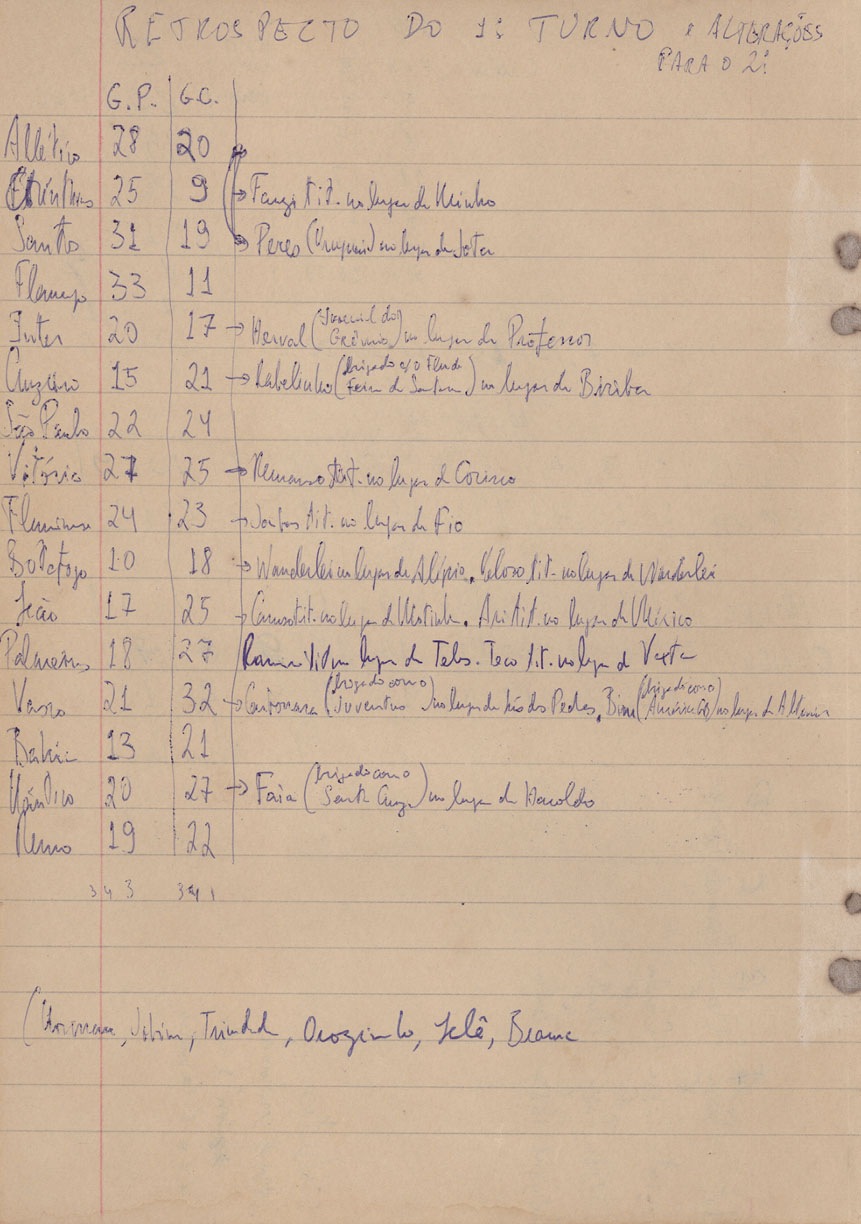 RETROSPECTO DO 1º TURNO e ALTERAÇÕES
PARA O 2º
G.P. G.C.
Atlético 28 20
Corinthians 25 9 → tit. no lugar de Minho
Santos 31 19 → Peres (Uruguai) no lugar de Jota
Flamengo 33 11
Inter 20 17 → Herval (Juvenil do Grêmio) no lugar de Professor
Cruzeiro 15 21 → Rabelinho (brigado c/o Flu de Feira de Santana) no lugar de Biriba
São Paulo 22 24
Vitória 27 25 → Remanso tit. no lugar de Corisco
Fluminense 24 23 → tit. no lugar de Fio
Botafogo 10 18 → Wanderlei no lugar de Alípio. Veloso tit. no lugar de Wanderlei
Leão 17 25 → tit. no lugar de. Ari tit. no lugar de México
Palmeiras 18 27 tit. no lugar de Teles. Teco tit. no lugar de
Vasco 21 32 → (brigado com o Juventus) no lugar de Zé das Pedras, (brigado com o América) no lugar de
Bahia 13 21
Náutico 20 27 → Faia (brigado com o Santa Cruz) no lugar de Haroldo
Remo 19 22
343 341
Trindade, Orozimbo, Telê,